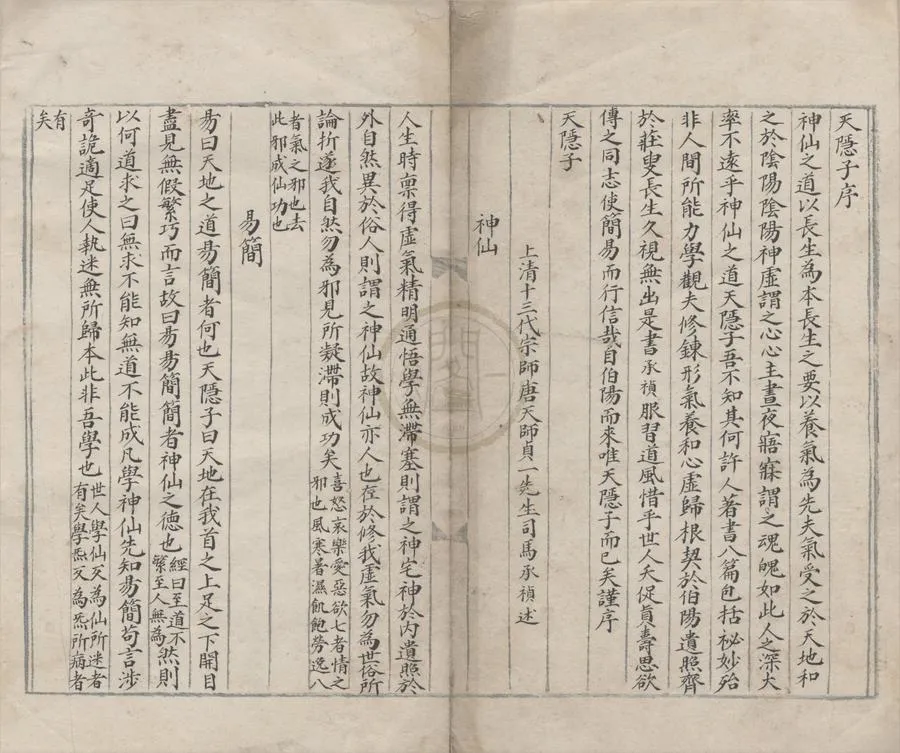 天隱子序
神仙之道以長生為本長生之要以養氣為先夫氣受之於天地和
之於陰陽陰陽神虛謂之心心主晝夜寤寐謂之魂魄如此人之深大
率不遠乎神仙之道天隱子吾不知其何許人著書八篇包括秘妙殆
非人間所能力學觀夫修鍊形氣養和心虛歸根契於伯陽遺照齊
於莊叟長生久視無出是書承禎服習道風惜乎世人夭促真壽思欲
傳之同志使簡易而行信哉自伯陽而來唯天隱子而已矣謹序
天隱子
上清十三代宗師唐天師貞一先生司馬承禎述
神仙
人生時稟得虛氣精明通悟學無滯塞則謂之神宅神於內遺照於
外自然異於俗人則謂之神仙故神仙亦人也在於修我虛氣勿為世俗所
論折遂我自然勿為邪見所凝滯則成功矣喜怒哀樂愛惡欲七者情之
邪也風寒暑濕飢飽勞逸八
者氣之邪也去
此邪成仙功也
易簡
易曰天地之道易簡者何也天隱子曰天地在我首之上足之下開目
盡見無假繁巧而言故曰易易簡簡者神仙之德也經曰至道不
繁至人無為然則
以何道求之曰無求不能知無道不能成凡學神仙先知易簡苟言涉
奇詭適足使人執迷無所歸本此非吾學也世人學仙反為仙所迷者
有矣學炁反為炁所病者
有
矣